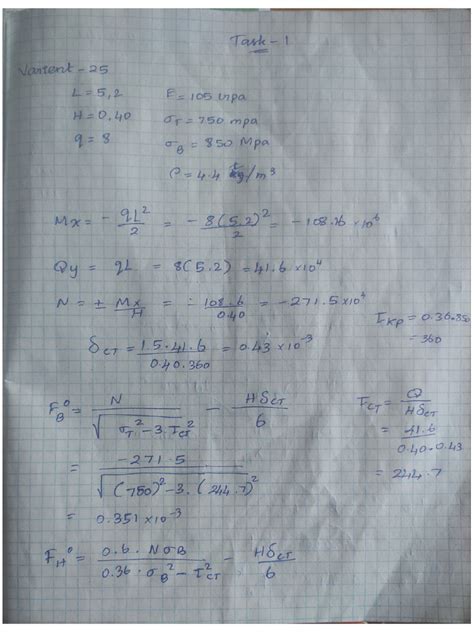 Task - 1
Varient - 25
L = 5,2 E = 105 mpa
H = 0,40 σT = 750 mpa
q = 8 σB = 850 Mpa
ρ = 4.4 t/m³
Mx = - qL²/2 = - 8(5.2)²/2 = - 108.16 × 10⁶
Qy = qL = 8(5.2) = 41.6 × 10⁴
N = ± Mx/H = - 108.6/0.40 = - 271.5 × 10⁴
τкр = 0.36.850
= 360
δст = 1.5.41.6 / 0.40.360 = 0.43 × 10⁻³
FB⁰ = N / √(σT² - 3.τст²) - Hδст/6
τст = Q / Hδст
= 41.6 / 0.40.0.43
= 244.7
= -271.5 / √((750)² - 3.(244.7)²)
= 0.351 × 10⁻³
FH⁰ = 0.6.NσB / 0.36.σB² - τст² - Hδст/6